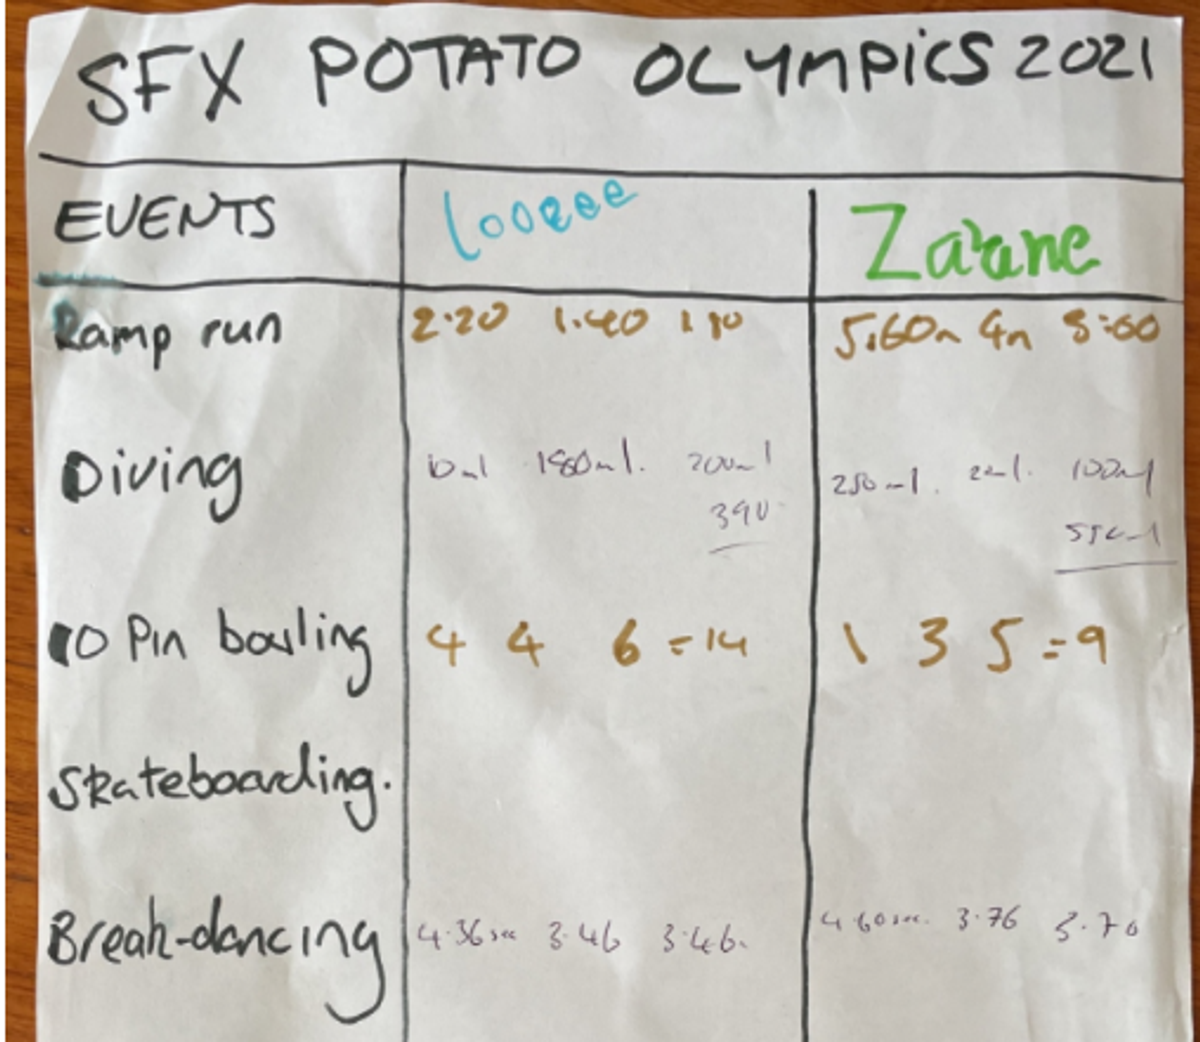 SFX POTATO OLYMPICS 2021
EVENTS looeee Zaane
Ramp run 2.20 1.40 1.10 5.60m 4m
Diving 10ml 180ml. 200ml 250ml. 100ml
390
10 Pin bowling 4 4 6 = 14 1 3 5 = 9
Skateboarding.
Break-dancing 4.36sec 3.46 3.46. 4.60sec. 3.76 3.70